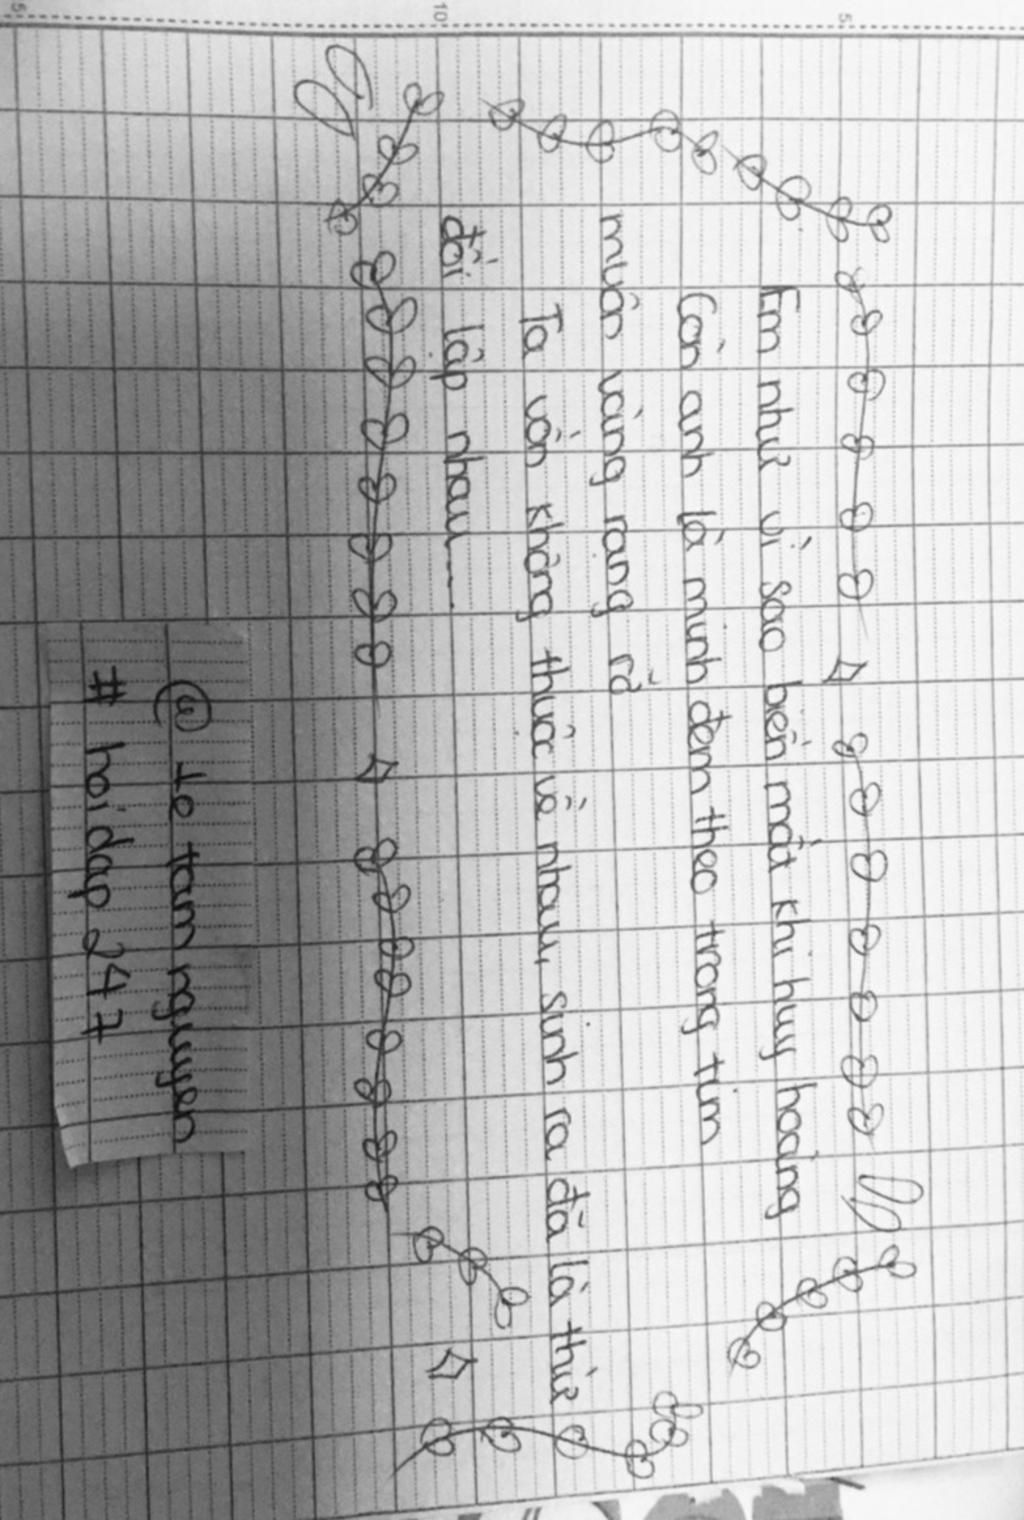 Em như vì sao biến mất khi huy hoàng
Còn anh là mình đem theo trong tim
muôn vàng rạng rỡ
Ta vốn không thuộc về nhau, sinh ra đã là thứ
đối lập nhau....
le tam nguyen
# hoidap 247
5
10
15